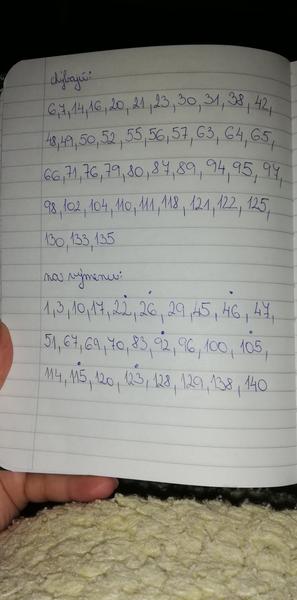 chýbajú:
6,7,14,16,20,21,23,30,31,38,42,
48,49,50,52,55,56,57,63,64,65,
66,71,76,79,80,87,89,94,95,97,
98,102,104,110,111,118,121,122,125,
130,133,135
na výmenu:
1,3,10,17,22,26,29,45,46,47,
51,67,69,70,83,92,96,100,105,
114,115,120,123,128,129,138,140